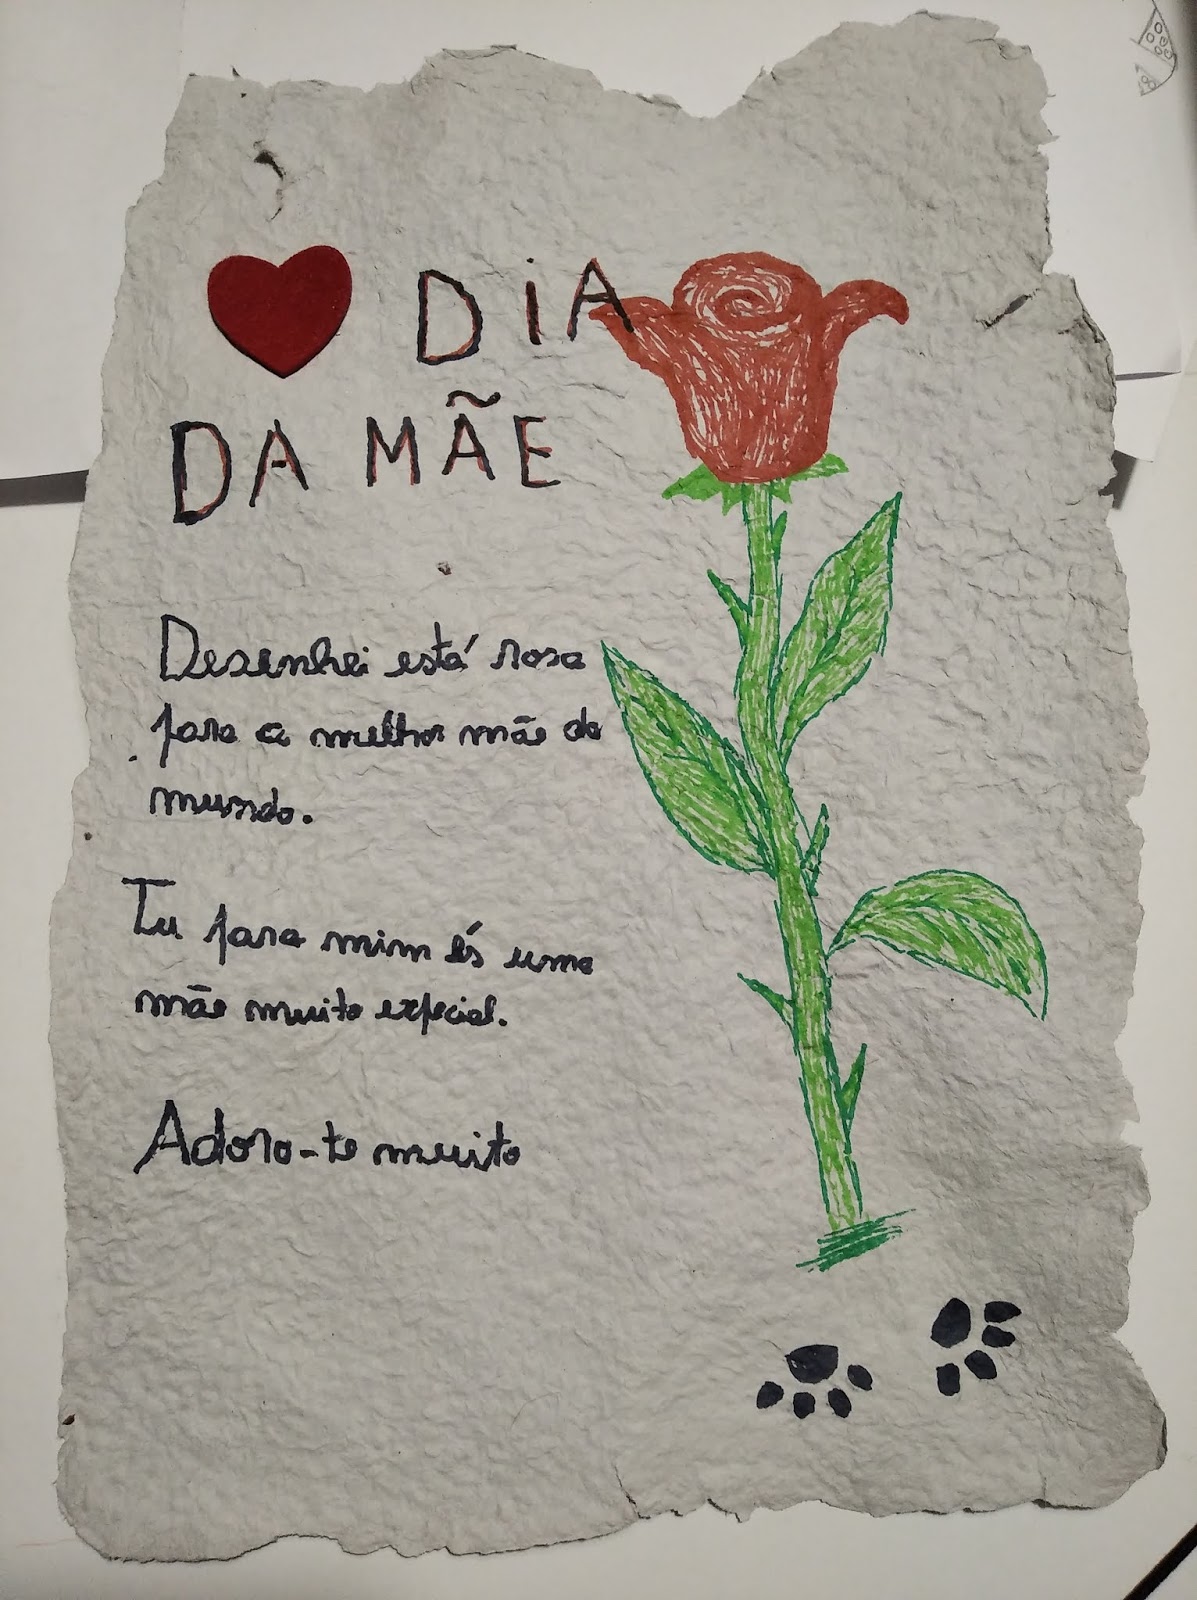 DiA
DA MÃE
Desenhei está rosa
para a melhor mãe do
mundo.
Tu para mim és uma
mãe muito expecial.
Adoro-te muito